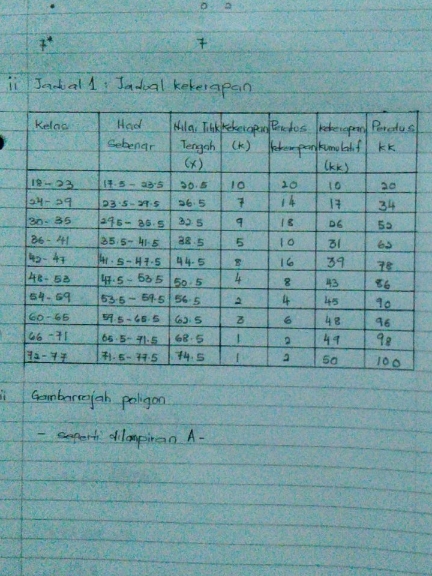 0 2
7* 7
ii Jadual 1 : Jadual kekerapan
Kelas Had Sebenar Nilai Titik Tengah (X) Kekerapan (k) Peratus kekerapan kekerapan kumulatif (kk) Peratus kk
18-23 17.5-23.5 20.5 10 20 10 20
24-29 23.5-29.5 26.5 7 14 17 34
30-35 29.5-35.5 32.5 9 18 26 52
36-41 35.5-41.5 38.5 5 10 31 62
42-47 41.5-47.5 44.5 8 16 39 78
48-53 47.5-53.5 50.5 4 8 43 86
54-59 53.5-59.5 56.5 2 4 45 90
60-65 59.5-65.5 62.5 3 6 48 96
66-71 65.5-71.5 68.5 1 2 49 98
72-77 71.5-77.5 74.5 1 2 50 100
ii Gambarajah poligon
- seperti dilampiran A -